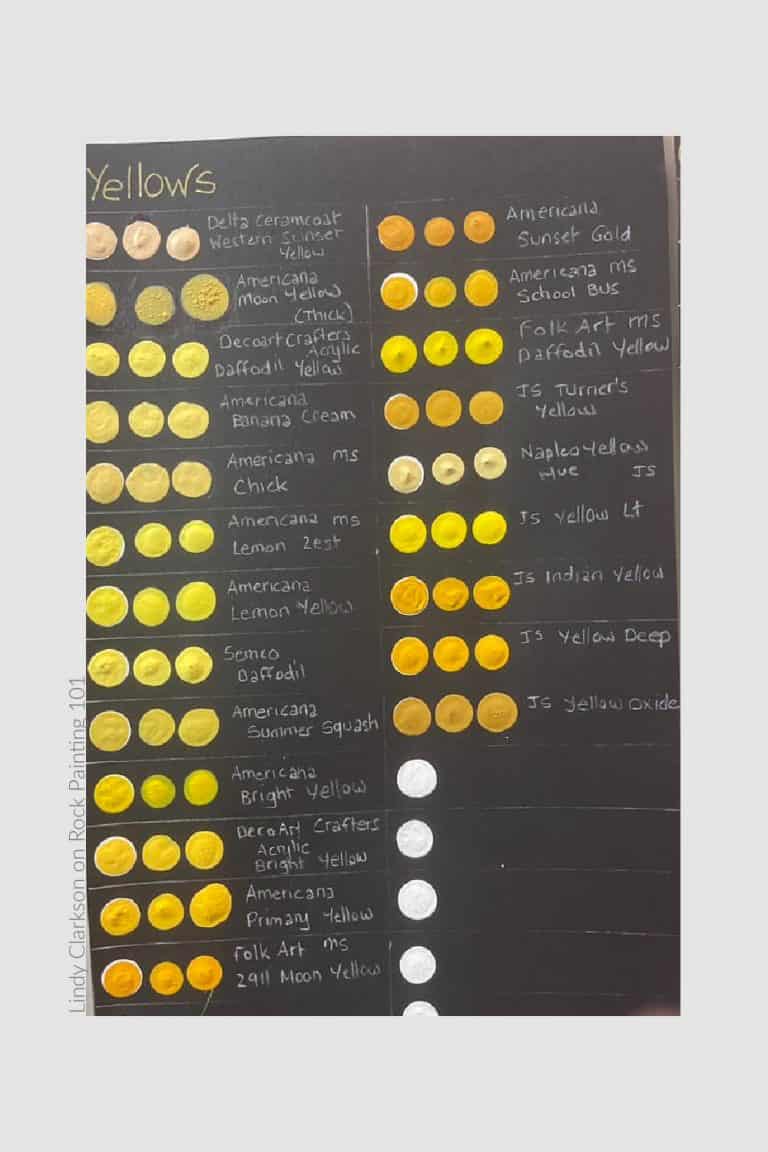 Yellows
Delta Ceramcoat
Western Sunset
Yellow
Americana
Moon Yellow
(Thick)
Decoart Crafters
Acrylic
Daffodil Yellow
Americana
Banana Cream
Americana ms
Chick
Americana ms
Lemon Zest
Americana
Lemon Yellow
Semco
Daffodil
Americana
Summer Squash
Americana
Bright Yellow
DecoArt Crafters
Acrylic
Bright Yellow
Americana
Primary Yellow
Folk Art ms
2911 Moon Yellow
Americana
Sunset Gold
Americana ms
School Bus
Folk Art ms
Daffodil Yellow
JS Turner's
Yellow
Naples Yellow
Hue JS
JS Yellow Lt
JS Indian Yellow
JS Yellow Deep
JS Yellow Oxide
Lindy Clarkson on Rock Painting 101